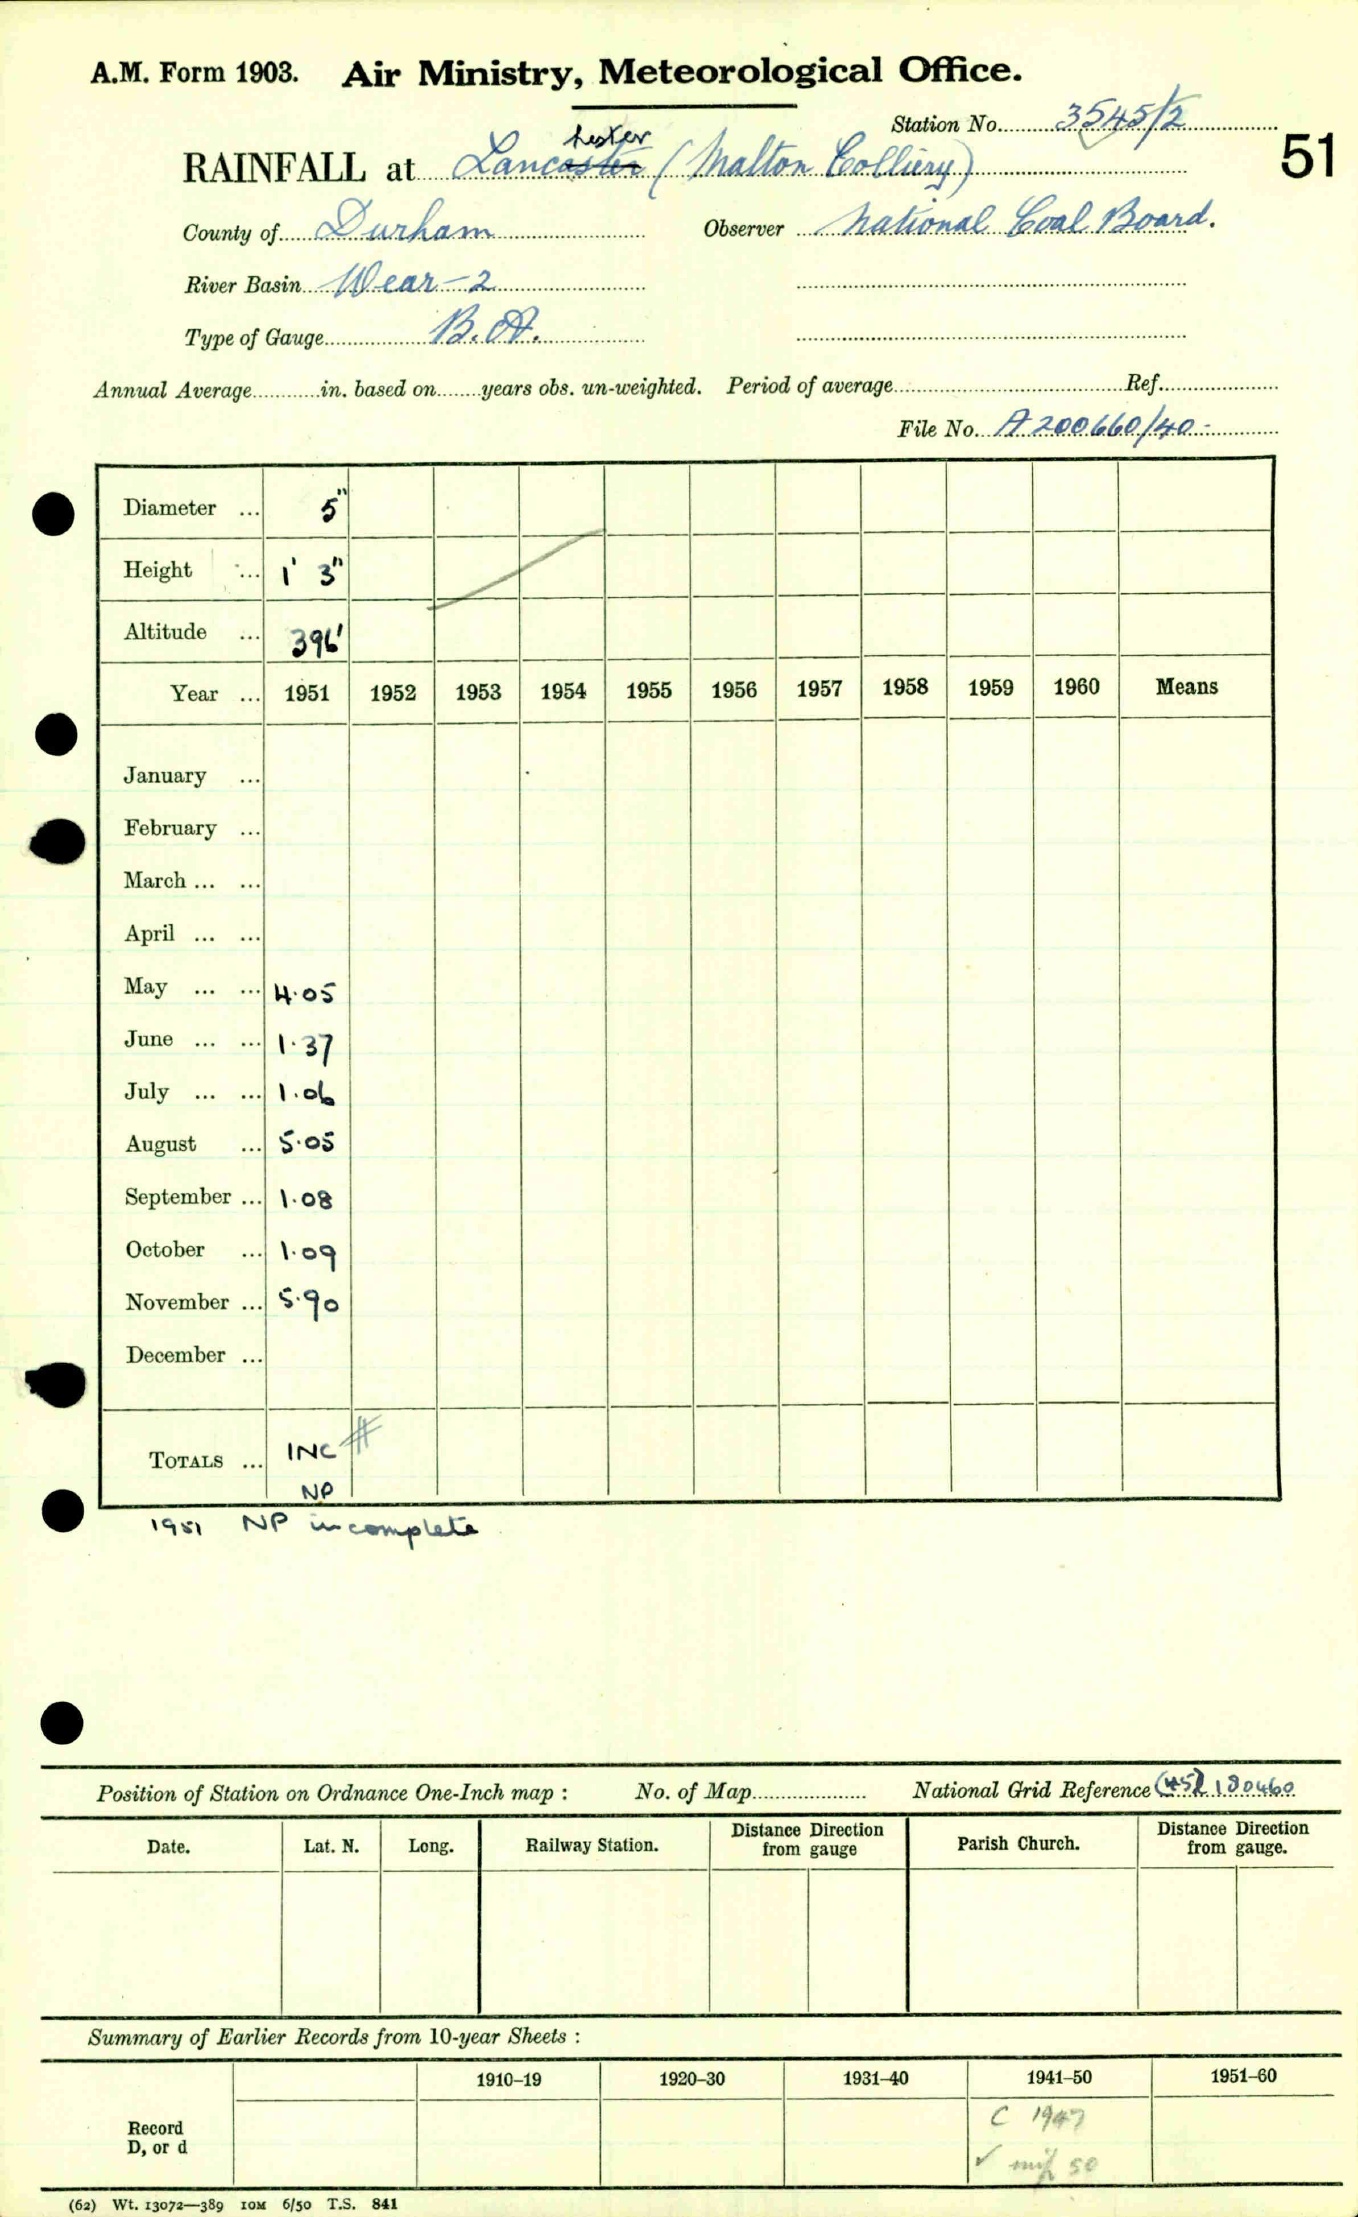 A.M. Form 1903. Air Ministry, Meteorological Office.
Station No. 3545/2
51
chester
RAINFALL at Lancaster (Malton Colliery)
County of Durham Observer National Coal Board.
River Basin Wear-2
Type of Gauge B.A.
Annual Average............in. based on........years obs. un-weighted. Period of average........ Ref........
File No. A200660/40-
Diameter ... 5"
Height ... 1' 3"
Altitude ... 396'
Year ... 1951 1952 1953 1954 1955 1956 1957 1958 1959 1960 Means
January ...
February ...
March ... ...
April ... ...
May ... ... 4.05
June ... ... 1.37
July ... ... 1.06
August ... 5.05
September ... 1.08
October ... 1.09
November ... 5.90
December ...
TOTALS ... INC #
NP
1951 NP incomplete
Position of Station on Ordnance One-Inch map : No. of Map.................... National Grid Reference (45) 180460
Date. Lat. N. Long. Railway Station. Distance Direction from gauge Parish Church. Distance Direction from gauge.
Summary of Earlier Records from 10-year Sheets :
1910–19 1920–30 1931–40 1941–50 1951–60
Record D, or d
C 1947
✓ 50
(62) Wt. 13072—389 10M 6/50 T.S. 841